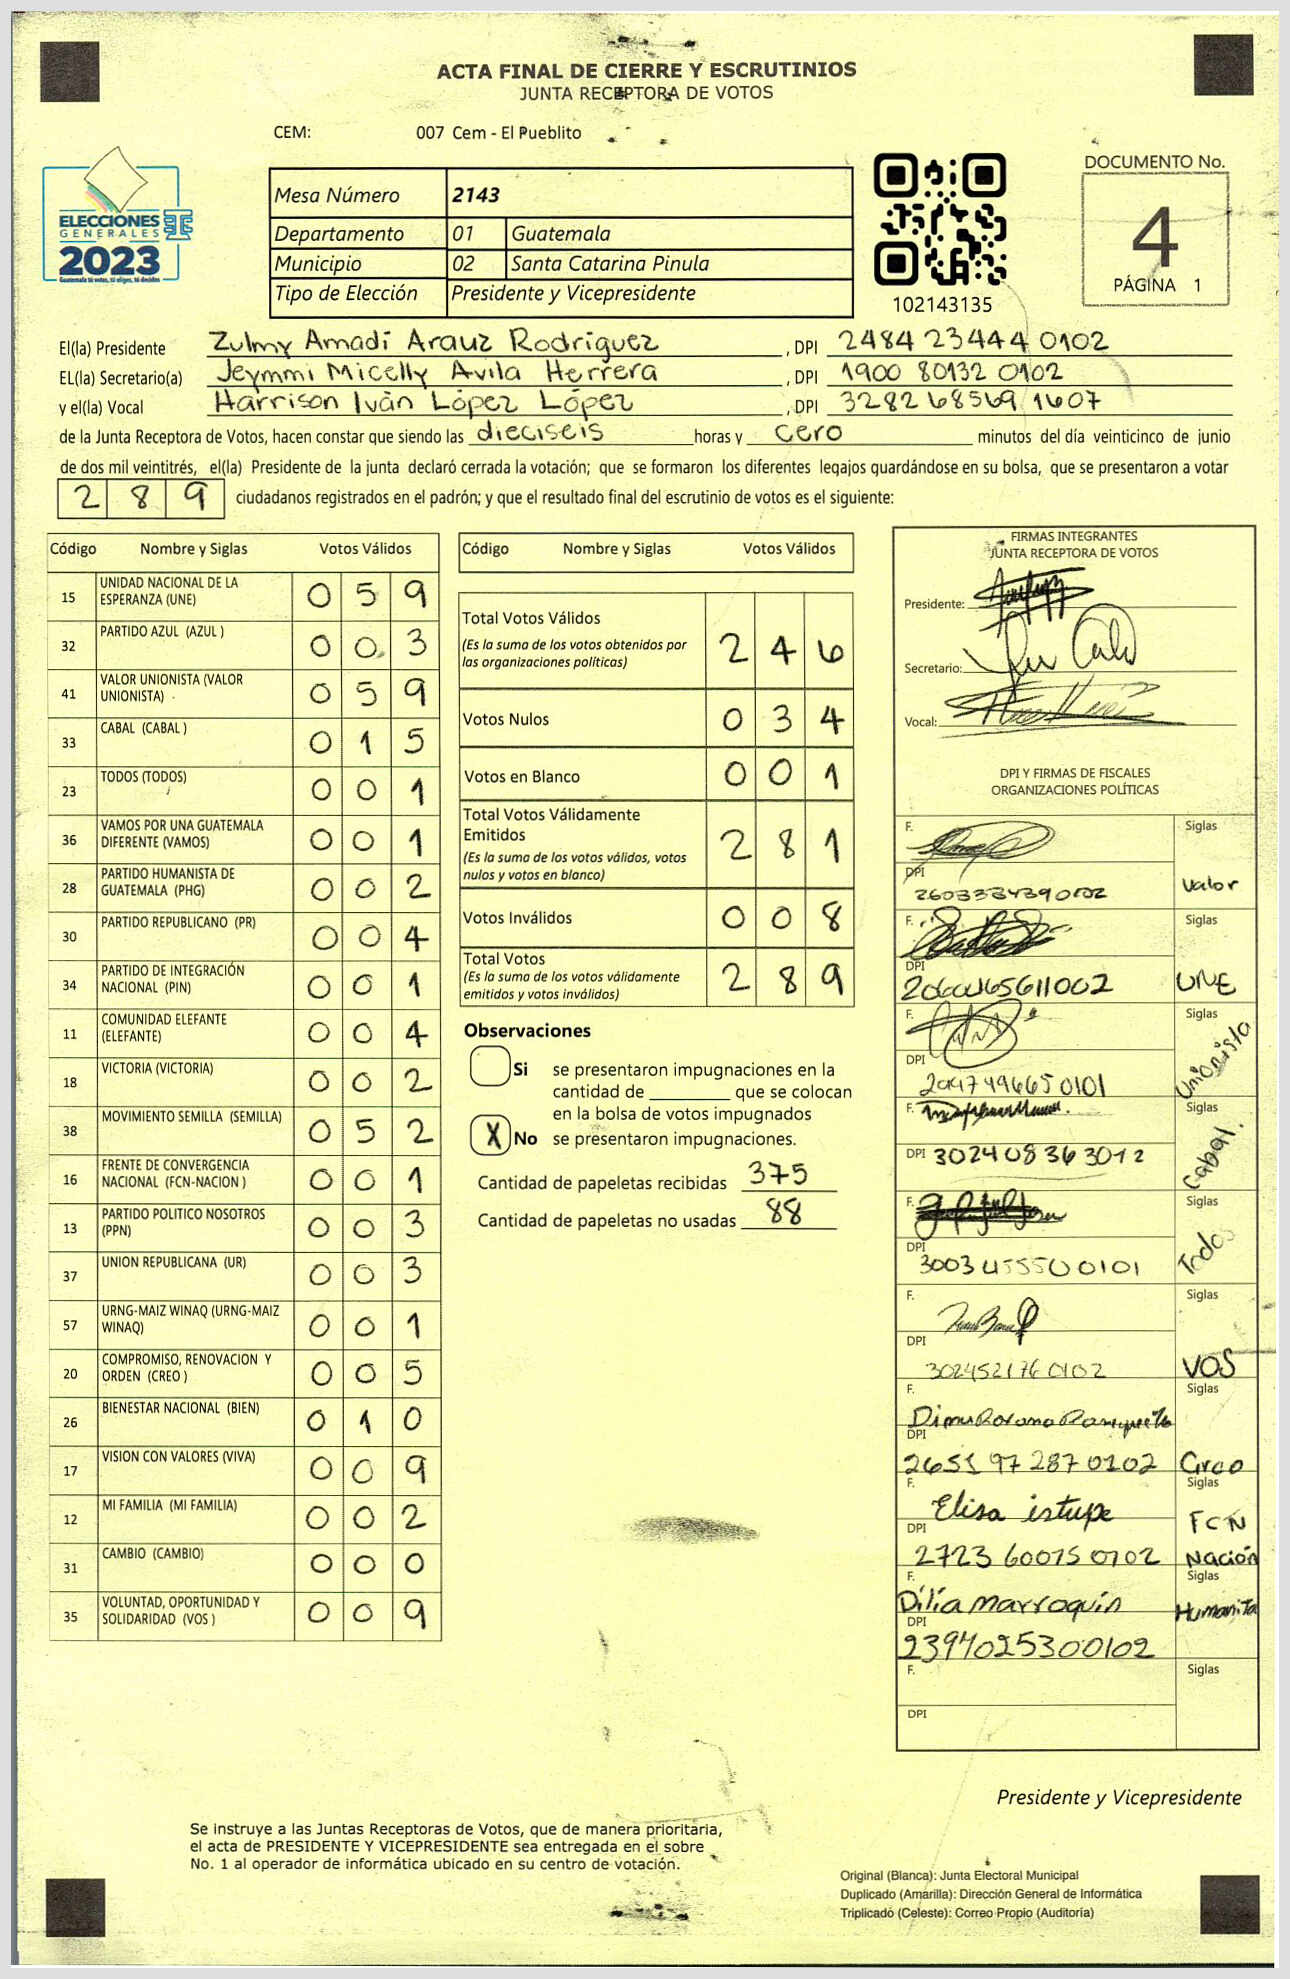 ACTA FINAL DE CIERRE Y ESCRUTINIOS
JUNTA RECEPTORA DE VOTOS
CEM: 007 Cem - El Pueblito
ELECCIONES
GENERALES
2023
Guatemala tú votas, tú eliges, tú decides
Mesa Número 2143
Departamento 01 Guatemala
Municipio 02 Santa Catarina Pinula
Tipo de Elección Presidente y Vicepresidente
102143135
DOCUMENTO No.
4
PÁGINA 1
El(la) Presidente Zulmy Amadí Arauz Rodriguez , DPI 2484 23444 0102
EL(la) Secretario(a) Jeymmi Micelly Avila Herrera , DPI 1900 80132 0102
y el(la) Vocal Harrison Iván López López , DPI 3282 68569 1607
de la Junta Receptora de Votos, hacen constar que siendo las dieciseis horas y cero minutos del día veinticinco de junio
de dos mil veintitrés, el(la) Presidente de la junta declaró cerrada la votación; que se formaron los diferentes legajos guardándose en su bolsa, que se presentaron a votar
289 ciudadanos registrados en el padrón; y que el resultado final del escrutinio de votos es el siguiente:
Código Nombre y Siglas Votos Válidos
15 UNIDAD NACIONAL DE LA ESPERANZA (UNE) 0 5 9
32 PARTIDO AZUL (AZUL ) 0 0 3
41 VALOR UNIONISTA (VALOR UNIONISTA) 0 5 9
33 CABAL (CABAL ) 0 1 5
23 TODOS (TODOS) 0 0 1
36 VAMOS POR UNA GUATEMALA DIFERENTE (VAMOS) 0 0 1
28 PARTIDO HUMANISTA DE GUATEMALA (PHG) 0 0 2
30 PARTIDO REPUBLICANO (PR) 0 0 4
34 PARTIDO DE INTEGRACIÓN NACIONAL (PIN) 0 0 1
11 COMUNIDAD ELEFANTE (ELEFANTE) 0 0 4
18 VICTORIA (VICTORIA) 0 0 2
38 MOVIMIENTO SEMILLA (SEMILLA) 0 5 2
16 FRENTE DE CONVERGENCIA NACIONAL (FCN-NACION ) 0 0 1
13 PARTIDO POLITICO NOSOTROS (PPN) 0 0 3
37 UNION REPUBLICANA (UR) 0 0 3
57 URNG-MAIZ WINAQ (URNG-MAIZ WINAQ) 0 0 1
20 COMPROMISO, RENOVACION Y ORDEN (CREO ) 0 0 5
26 BIENESTAR NACIONAL (BIEN) 0 1 0
17 VISION CON VALORES (VIVA) 0 0 9
12 MI FAMILIA (MI FAMILIA) 0 0 2
31 CAMBIO (CAMBIO) 0 0 0
35 VOLUNTAD, OPORTUNIDAD Y SOLIDARIDAD (VOS ) 0 0 9
Código Nombre y Siglas Votos Válidos
Total Votos Válidos 2 4 6
(Es la suma de los votos obtenidos por
las organizaciones políticas)
Votos Nulos 0 3 4
Votos en Blanco 0 0 1
Total Votos Válidamente
Emitidos 2 8 1
(Es la suma de los votos válidos, votos
nulos y votos en blanco)
Votos Inválidos 0 0 8
Total Votos 2 8 9
(Es la suma de los votos válidamente
emitidos y votos inválidos)
Observaciones
Si se presentaron impugnaciones en la
cantidad de ________ que se colocan
en la bolsa de votos impugnados
X No se presentaron impugnaciones.
Cantidad de papeletas recibidas 375
Cantidad de papeletas no usadas 88
FIRMAS INTEGRANTES
JUNTA RECEPTORA DE VOTOS
Presidente:
Secretario:
Vocal:
DPI Y FIRMAS DE FISCALES
ORGANIZACIONES POLÍTICAS
F. Siglas
DPI Valor
F. Siglas
DPI UNE
F. Siglas
DPI Unionista
F. Siglas
DPI 3024 08363 3012 Cabal.
F. Siglas
DPI Todos
F. Siglas
DPI 302452176 0102 VOS
F. Siglas
DPI 2651 97 287 0102 Creo
F. Elisa istupe
DPI 2723 60075 0102 FCN Nación
F. Dilia Marroquín Siglas
DPI 2394025300102 Humanita
F. Siglas
DPI
Presidente y Vicepresidente
Se instruye a las Juntas Receptoras de Votos, que de manera prioritaria,
el acta de PRESIDENTE Y VICEPRESIDENTE sea entregada en el sobre
No. 1 al operador de informática ubicado en su centro de votación.
Original (Blanca): Junta Electoral Municipal
Duplicado (Amarilla): Dirección General de Informática
Triplicado (Celeste): Correo Propio (Auditoría)